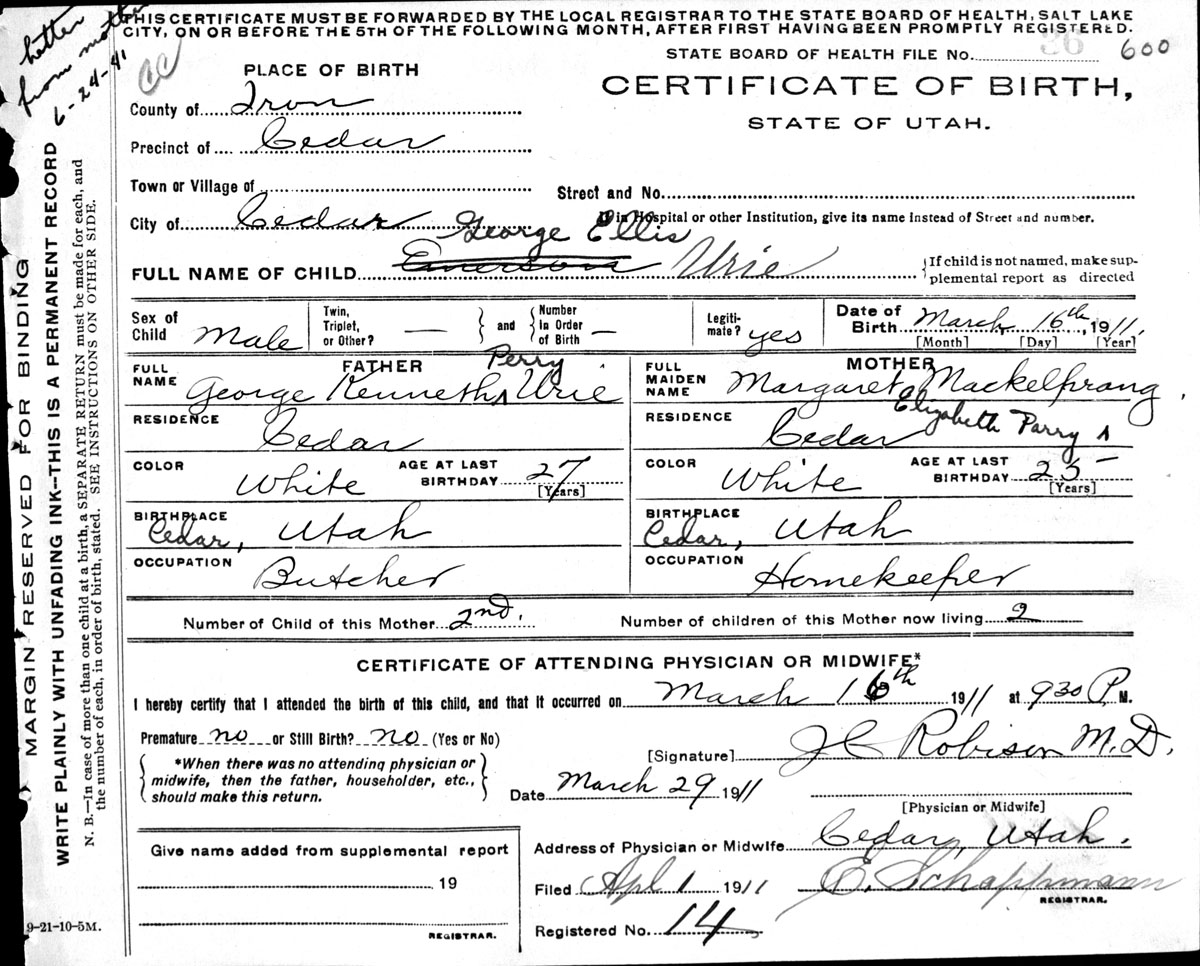 THIS CERTIFICATE MUST BE FORWARDED BY THE LOCAL REGISTRAR TO THE STATE BOARD OF HEALTH, SALT LAKE
CITY, ON OR BEFORE THE 5TH OF THE FOLLOWING MONTH, AFTER FIRST HAVING BEEN PROMPTLY REGISTERED.
letter
from mother
6-24-41
CC
STATE BOARD OF HEALTH FILE No. 26 600
PLACE OF BIRTH
CERTIFICATE OF BIRTH,
STATE OF UTAH.
County of Iron
Precinct of Cedar
Town or Village of
Street and No.
City of Cedar
If in Hospital or other Institution, give its name instead of Street and number.
George Ellis
FULL NAME OF CHILD Emerson Urie
If child is not named, make sup-
plemental report as directed
Sex of Child Male
Twin, Triplet, or Other? —
and
Number in Order of Birth —
Legiti-mate? yes
Date of Birth March 16th, 1911.
[Month] [Day] [Year]
FATHER
FULL NAME George Kenneth Perry Urie
RESIDENCE Cedar
COLOR White
AGE AT LAST BIRTHDAY 27
[Years]
BIRTHPLACE Cedar, Utah
OCCUPATION Butcher
MOTHER
FULL MAIDEN NAME Margaret Mackelprang
Elizabeth Parry
RESIDENCE Cedar
COLOR White
AGE AT LAST BIRTHDAY 25
[Years]
BIRTHPLACE Cedar, Utah
OCCUPATION Homekeeper
Number of Child of this Mother 2nd.
Number of children of this Mother now living 2
CERTIFICATE OF ATTENDING PHYSICIAN OR MIDWIFE*
I hereby certify that I attended the birth of this child, and that it occurred on March 16th 1911 at 9 30 P. M.
Premature no or Still Birth? no (Yes or No)
*When there was no attending physician or
midwife, then the father, householder, etc.,
should make this return.
[Signature] J C Robison M.D.
Date March 29 1911
[Physician or Midwife]
Address of Physician or Midwife Cedar, Utah.
Give name added from supplemental report
19
REGISTRAR.
Filed Apl 1 1911 E. Schappmann
REGISTRAR.
Registered No. 14
9-21-10-5M.
MARGIN RESERVED FOR BINDING
WRITE PLAINLY WITH UNFADING INK--THIS IS A PERMANENT RECORD
N. B.—In case of more than one child at a birth, a SEPARATE RETURN must be made for each, and
the number of each, in order of birth, stated. SEE INSTRUCTIONS ON OTHER SIDE.